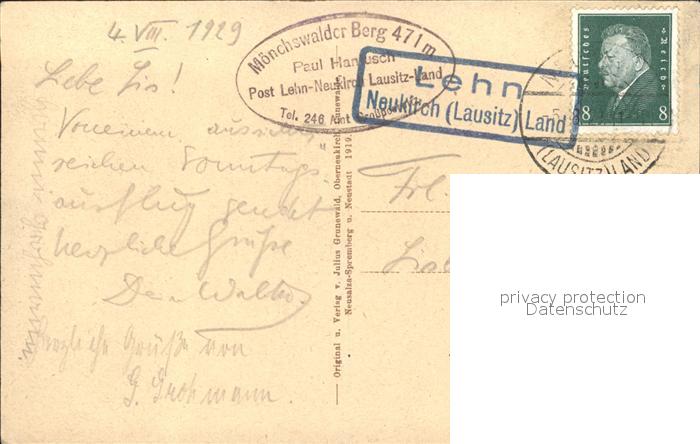 4. VIII. 1929
Mönchswalder Berg 471 m
Paul Hantusch
Post Lehn-Neukirch Lausitz-Land
Tel. 246 Amt
Lehn
Neukirch (Lausitz) Land
Deutsches Reich
8 8
(LAUSITZ) LAND
Liebe Lis!
Von einem aussichts
reichen Sonntags
ausflug sendet
herzliche Grüße
Dein Walter.
Herzliche Grüße von
G. Grohmann.
Frl.
Original u. Verlag v. Julius Grunewald, Oberneukirch
Neusalza-Spremberg u. Neustadt 1919.
privacy protection
Datenschutz